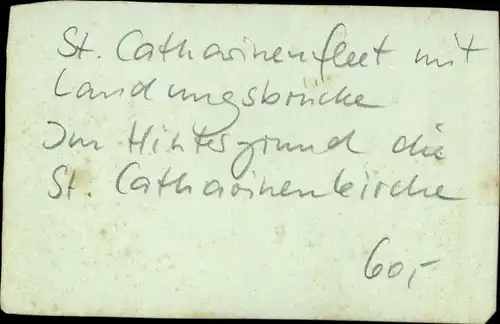 St. Catharinenfleet mit
Landungsbrücke
Im Hintergrund die
St. Catharinenkirche
60,-